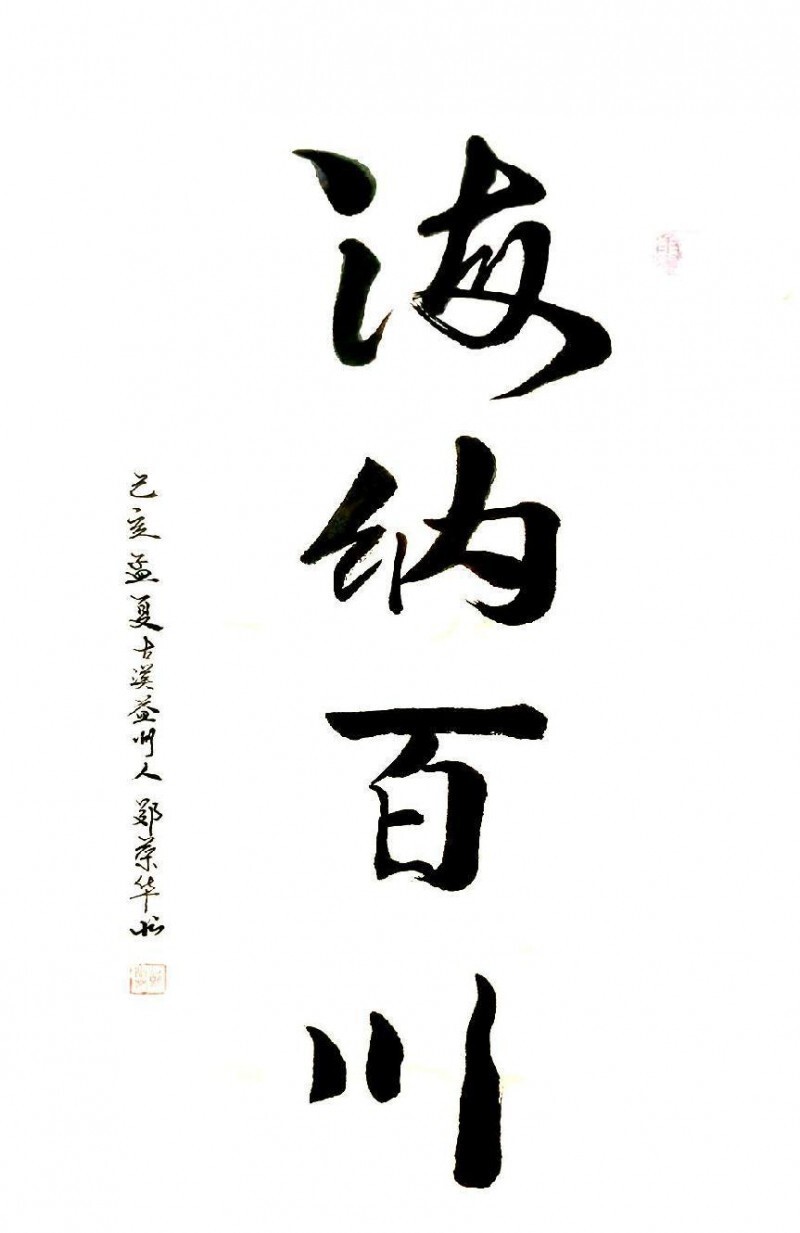 海纳百川
己亥孟夏古汉益州人郑荣华书